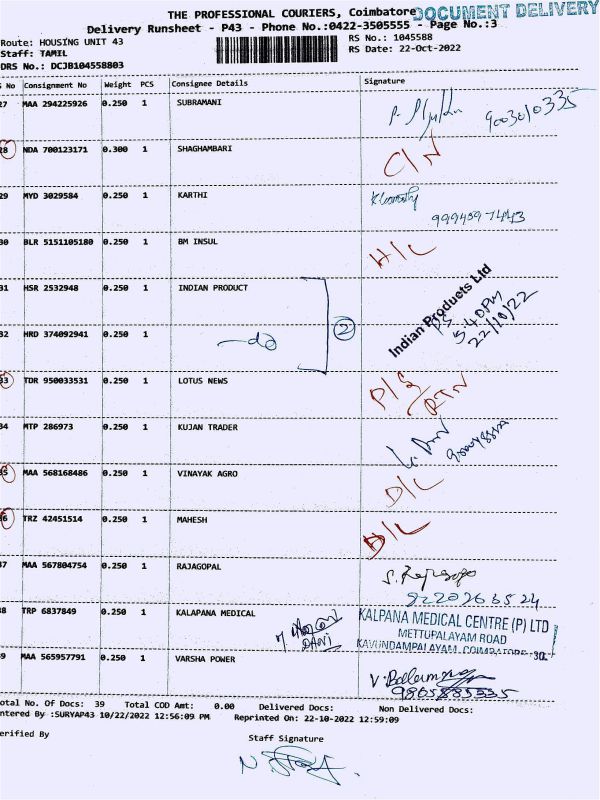 THE PROFESSIONAL COURIERS, Coimbatore
DOCUMENT DELIVERY
Delivery Runsheet - P43 - Phone No.:0422-3505555 - Page No.:3
Route: HOUSING UNIT 43
RS No.: 1045588
Staff: TAMIL
RS Date: 22-Oct-2022
DRS No.: DCJB104558803
No Consignment No Weight PCS Consignee Details Signature
27 MAA 294225926 0.250 1 SUBRAMANI
9003010335
28 NDA 700123171 0.300 1 SHAGHAMBARI C/N
29 MYD 3029584 0.250 1 KARTHI
9994597443
30 BLR 5151105180 0.250 1 BM INSUL H/L
31 HSR 2532948 0.250 1 INDIAN PRODUCT
Indian Products Ltd
5:40PM
22/10/22
2
32 HRD 374092941 0.250 1 -do
33 TDR 950033531 0.250 1 LOTUS NEWS P/S
RTN
34 MTP 286973 0.250 1 KUJAN TRADER
35 MAA 568168486 0.250 1 VINAYAK AGRO D/L
36 TRZ 42451514 0.250 1 MAHESH D/L
37 MAA 567804754 0.250 1 RAJAGOPAL
38 TRP 6837849 0.250 1 KALAPANA MEDICAL
KALPANA MEDICAL CENTRE (P) LTD
METTUPALAYAM ROAD
KAVUNDAMPALAYAM, COIMBATORE-30.
39 MAA 565957791 0.250 1 VARSHA POWER
9865885535
otal No. Of Docs: 39 Total COD Amt: 0.00 Delivered Docs: Non Delivered Docs:
ntered By :SURYAP43 10/22/2022 12:56:09 PM Reprinted On: 22-10-2022 12:59:09
erified By Staff Signature